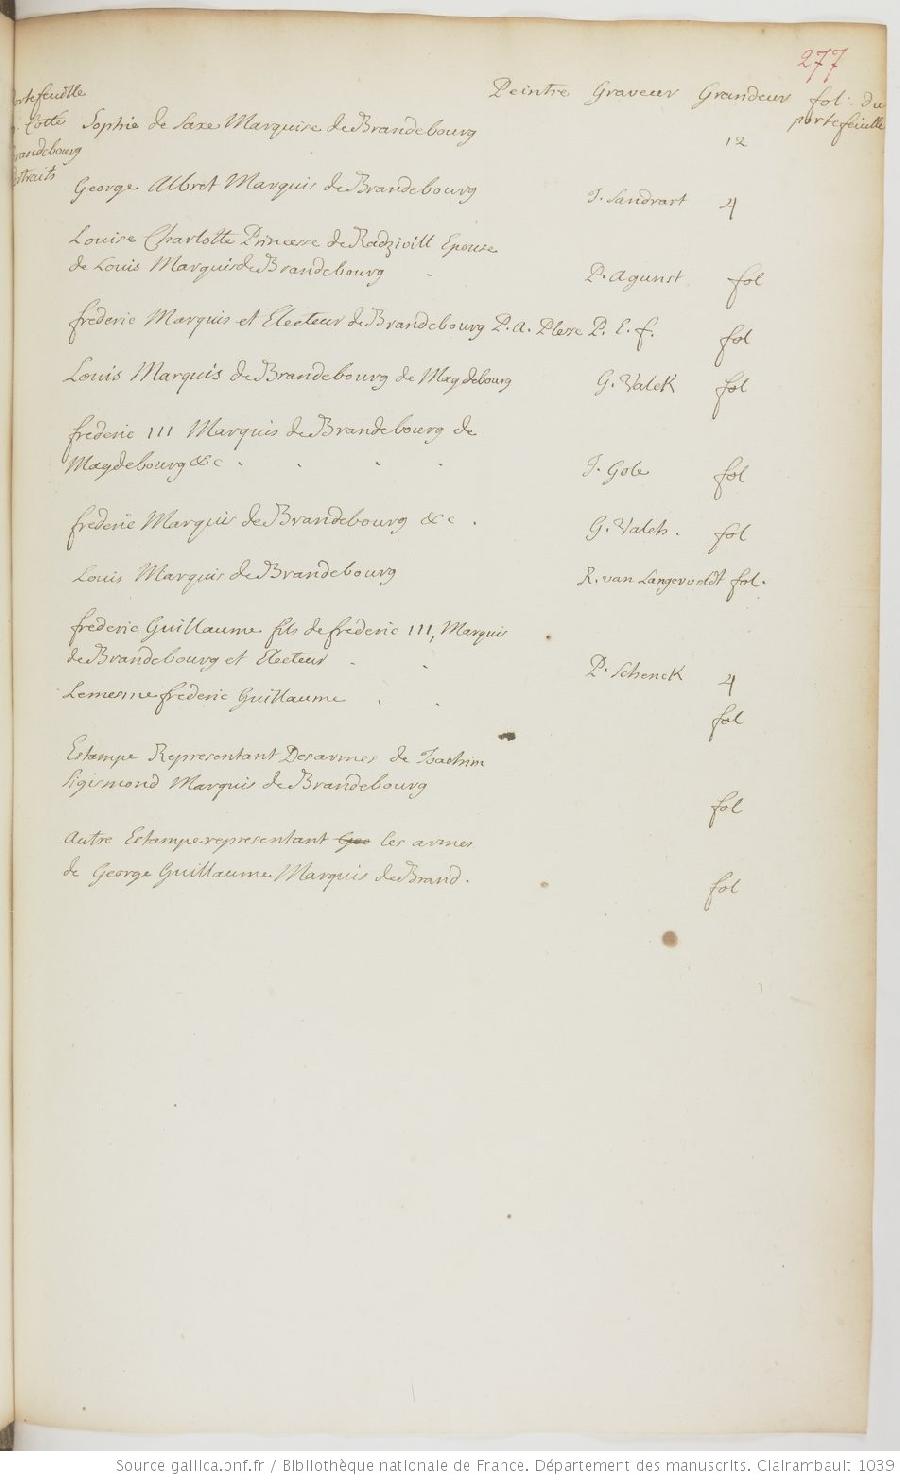 277
Peintre Graveur Grandeur fol. du
portefeuille
cotte
Sophie de Saxe Marquise de Brandebourg 12
George Albret Marquis de Brandebourg J. Sandrart 4
Louise Charlotte Princesse de Radzivill Epouse
de Louis Marquis de Brandebourg P. Agunst fol
frederic Marquis et Electeur de Brandebourg P. A. P. E. f. fol
Louis Marquis de Brandebourg de Magdebourg G. Valek fol
frederic III Marquis de Brandebourg de
Magdebourg &c J. Gole fol
frederic Marquis de Brandebourg &c. G. Valch. fol
Louis Marquis de Brandebourg R. van Langeveldt fol.
frederic Guillaume fils de frederic III, Marquis
de Brandebourg et Electeur P. Schenck 4
Lemesme frederic Guillaume fol
Estampe Representant Des armes de Joachim
Sigismond Marquis de Brandebourg fol
Autre Estampe representant les armes
de George Guillaume Marquis de Brand. fol
Source gallica.bnf.fr / Bibliothèque nationale de France. Département des manuscrits. Clairambault 1039